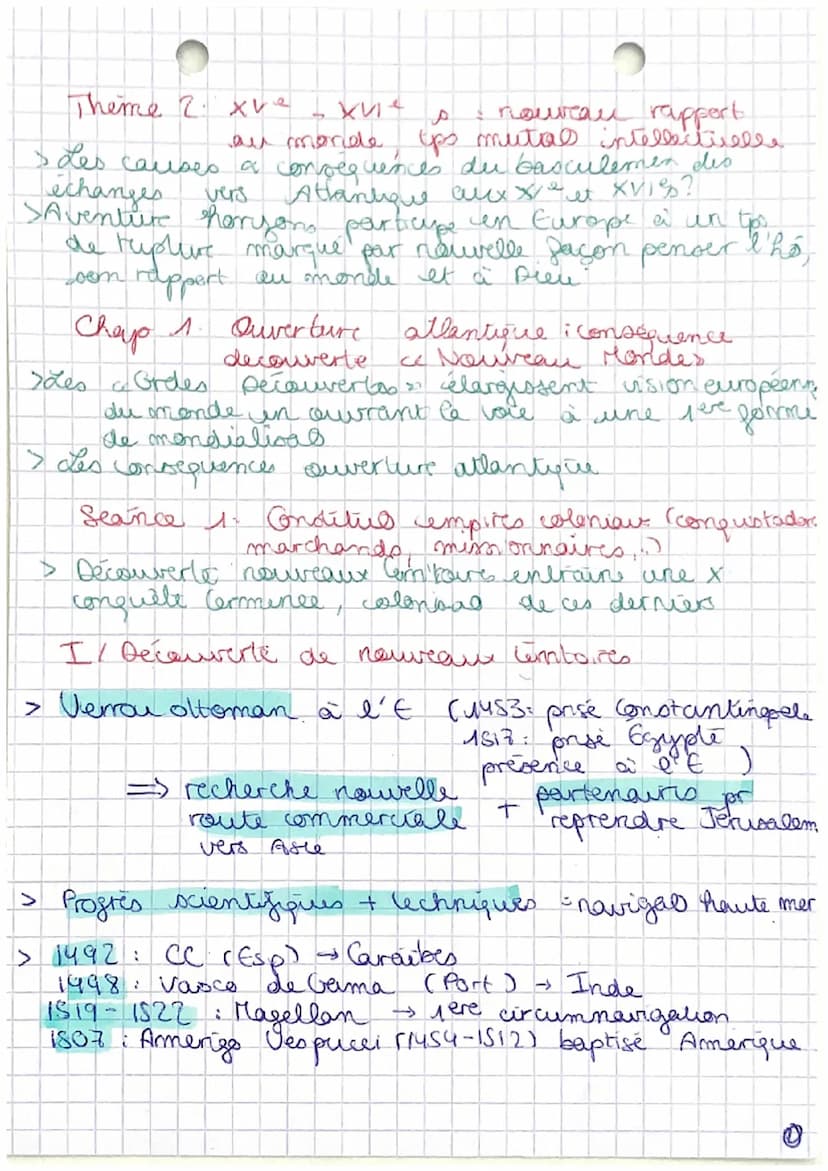 Thème 2. XVe - XVIe s : nouveau rapport
au monde, tps mutat° intellectuelle
> Les causes & conséquences du basculemen des
échanges vers Atlantique aux XVe et XVIe s?
> Aventure horizons participe en Europe à un tps
de rupture marqué par nouvelle façon penser l'hô,
son rapport au monde et à Dieu
Chap 1. Ouverture atlantique : conséquence
decouverte << Nouveau Monde >>
> Les << Grdes Découvertes >> élargissent vision européenn
du monde en ouvrant la voie à une 1ere forme
de mondialisat°
> Les conséquences ouverture atlantique
Seance 1. Constitut° empires coloniaux (conquistador
marchands, missionnaires,..)
> Découverte nouveaux territoires entraîne une x
conquête terminée, colonisat° de ces derniers
I/ Découverte de nouveaux territoires
> Verrou ottoman à l'E (1453: prise Constantinopole
1517: prise Egypte
présence à l'E )
=> recherche nouvelle + partenaires pr
route commerciale reprendre Jérusalem
vers Asie
> Progrès scientifiques + techniques = navigat° haute mer
> 1492 : CC (Esp) → Caraïbes
1498 : Vasco de Gama (Port) → Inde
1519-1522 : Magellan → 1ere circumnavigation
1507 : Amerigo Vespucci (1454-1512) baptise Amerique
1